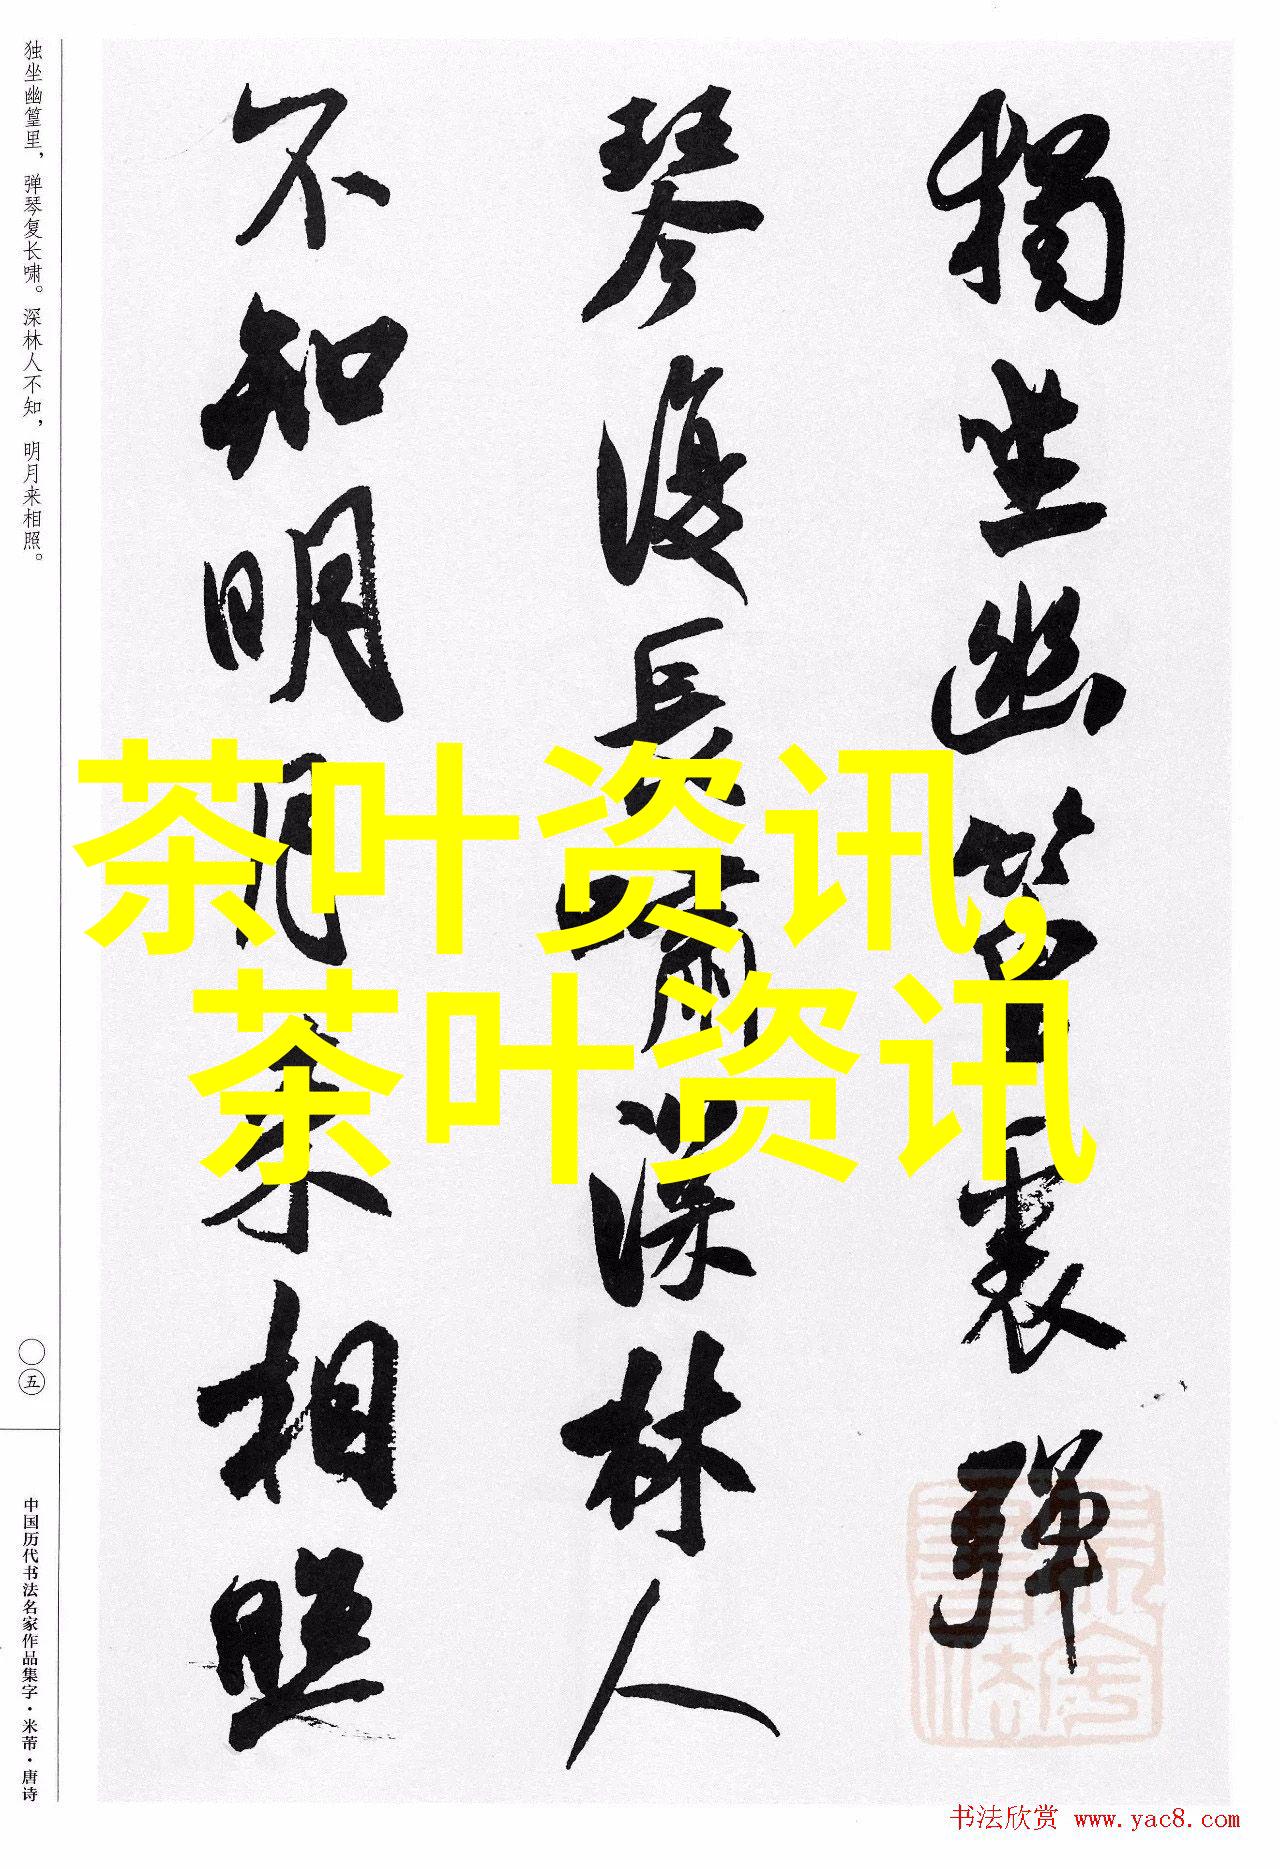 獨坐幽篁裏彈
琴復長嘯深林人
不知明月來相照
茶叶资讯,
茶叶资讯
独坐幽篁里，弹琴复长啸。深林人不知，明月来相照。
〇五
中国历代书法名家作品集字·米芾·唐诗
书法欣赏 www.yac8.com